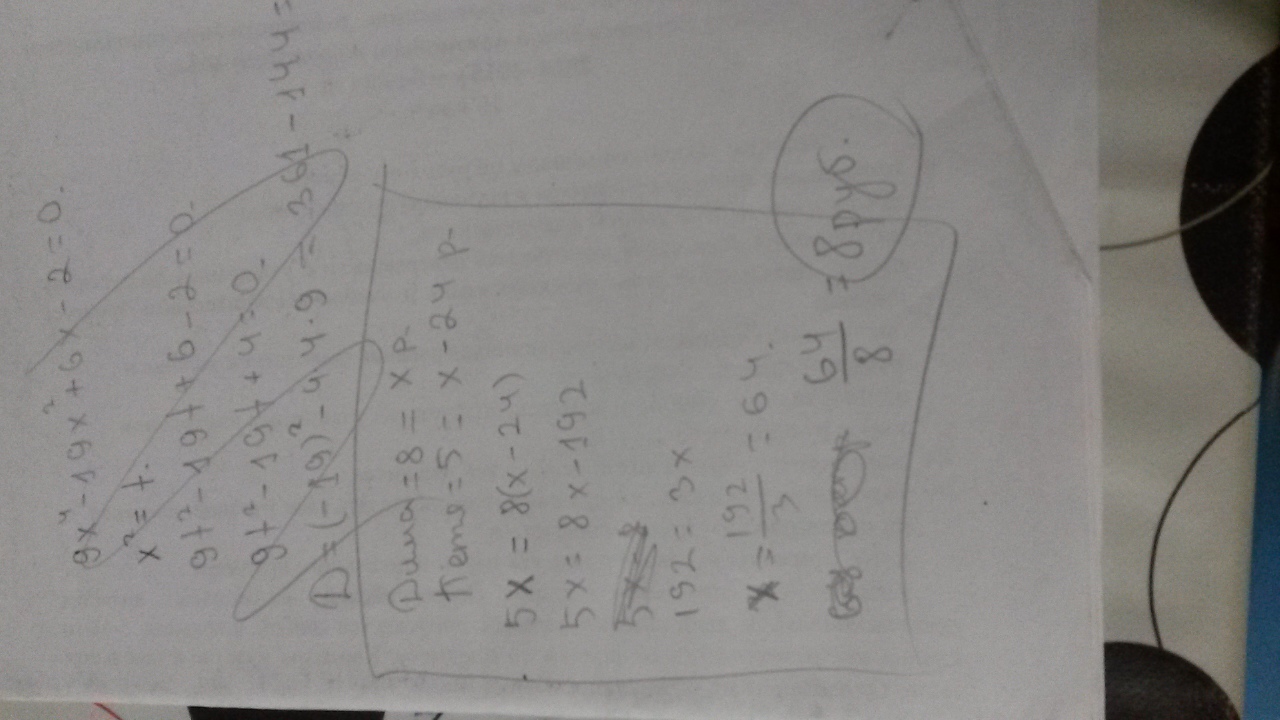 9x⁴-19x²+6x-2=0.
x²=t.
9t²-19t+6-2=0.
9t²-19t+4=0.
D=(-19)²-4·4·9=361-144=
Дима=8=x р.
Петя=5=x-24 р-
5x=8(x-24)
5x=8x-192
192=3x
x=192/3=64.
64/8=8руб.